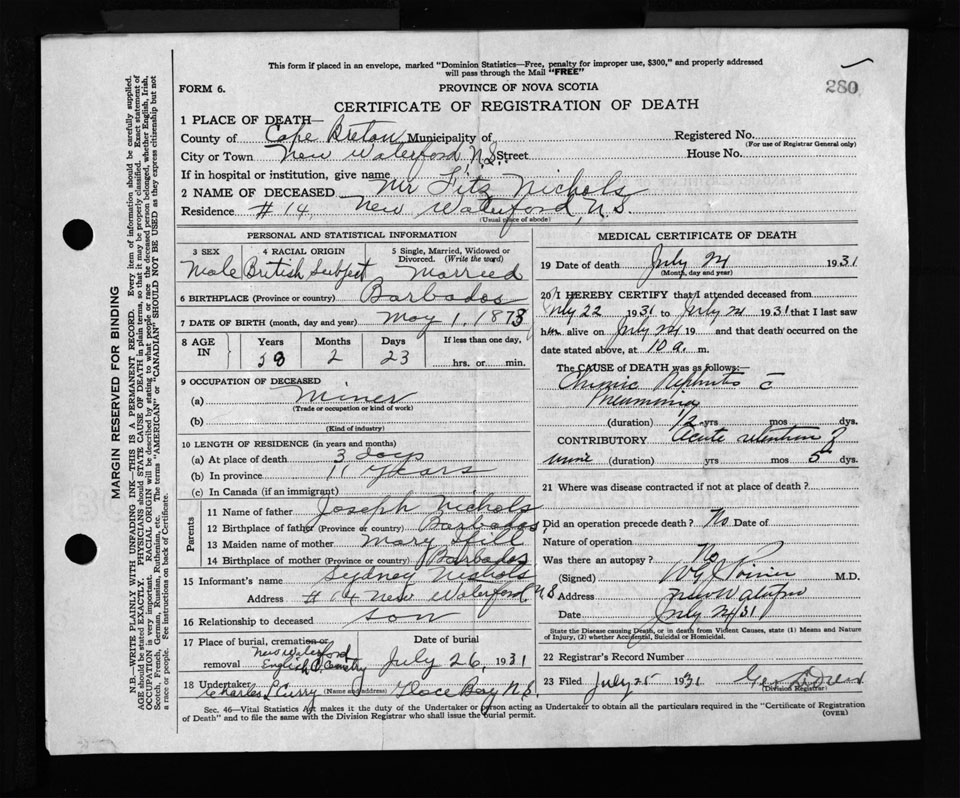 This form if placed in an envelope, marked "Dominion Statistics—Free, penalty for improper use, $300," and properly addressed
will pass through the Mail "FREE"
280
FORM 6.
PROVINCE OF NOVA SCOTIA
CERTIFICATE OF REGISTRATION OF DEATH
1 PLACE OF DEATH—
County of Cape Breton Municipality of
Registered No.
(For use of Registrar General only)
City or Town New Waterford N.S. Street
House No.
If in hospital or institution, give name
2 NAME OF DECEASED Mr Fitz Nichols
Residence #14, New Waterford, N.S
(Usual place of abode)
PERSONAL AND STATISTICAL INFORMATION
3 SEX
4 RACIAL ORIGIN
5 Single, Married, Widowed or Divorced. (Write the word)
Male British Subject Married
6 BIRTHPLACE (Province or country) Barbados
7 DATE OF BIRTH (month, day and year) May 1, 1873
8 AGE IN
Years Months Days If less than one day,
58 2 23 hrs. or min.
9 OCCUPATION OF DECEASED
(a) Miner
(Trade or occupation or kind of work)
(b)
(Kind of industry)
10 LENGTH OF RESIDENCE (in years and months)
(a) At place of death 3 days
(b) In province 11 years
(c) In Canada (if an immigrant)
Parents
11 Name of father Joseph Nichols
12 Birthplace of father (Province or country) Barbados
13 Maiden name of mother Mary Hill
14 Birthplace of mother (Province or country) Barbados
15 Informant's name Sydney Nichols
Address #14 New Waterford, N S
16 Relationship to deceased son
17 Place of burial, cremation or removal
New Waterford
English C. Cemetry
Date of burial
July 26, 1931
18 Undertaker Charles L Curry (Name and address) Glace Bay N.S.
MEDICAL CERTIFICATE OF DEATH
19 Date of death July 24 1931
(Month, day and year)
20 I HEREBY CERTIFY that I attended deceased from
July 22 1931 to July 24 1931 that I last saw
him alive on July 24 19 and that death occurred on the
date stated above, at 10 a. m.
The CAUSE OF DEATH was as follows:—
Chronic Nephritis c̄
Pneumonia
(duration) 12 yrs mos dys.
CONTRIBUTORY Acute retention of
urine (duration) yrs mos 5 dys.
21 Where was disease contracted if not at place of death?
Did an operation precede death? No Date of
Nature of operation
Was there an autopsy? No
(Signed) M.D.
Address New Waterford
Date July 24/31
State the Disease causing Death, or in death from Violent Causes, state (1) Means and Nature
of Injury, (2) whether Accidental, Suicidal or Homicidal.
22 Registrar's Record Number
23 Filed July 25 1931
(Division Registrar)
Sec. 46—Vital Statistics Act makes it the duty of the Undertaker or person acting as Undertaker to obtain all the particulars required in the "Certificate of Registration
of Death" and to file the same with the Division Registrar who shall issue the burial permit.
(OVER)
MARGIN RESERVED FOR BINDING
N.B.—WRITE PLAINLY WITH UNFADING INK—THIS IS A PERMANENT RECORD. Every item of information should be carefully supplied.
AGE should be stated EXACTLY. PHYSICIANS should STATE CAUSE OF DEATH in plain terms, so that it may be properly classified. Exact statement of
OCCUPATION is very important. RACIAL ORIGIN will be described by stating to what people or race the deceased person belonged, whether English, Irish,
Scotch, French, German, Russian, Ruthenian, etc. The terms "AMERICAN" or "CANADIAN" SHOULD NOT BE USED as they express citizenship but not
a race or people. See instructions on back of Certificate.